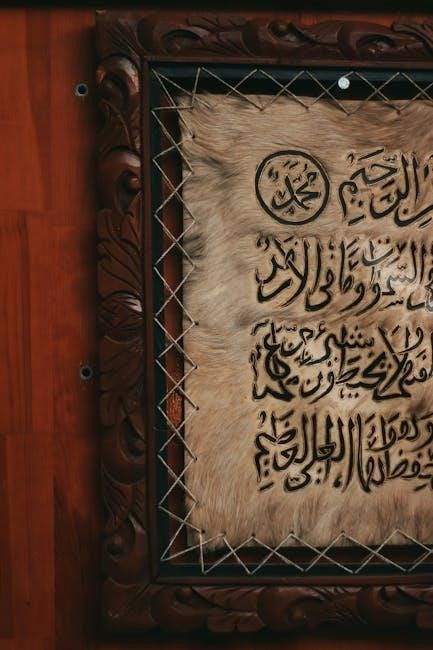 الرحيم محمد
السموات وما في الارض
ولا يحيطون بشيء من علمه
حفظهما وهو العلي العظيم